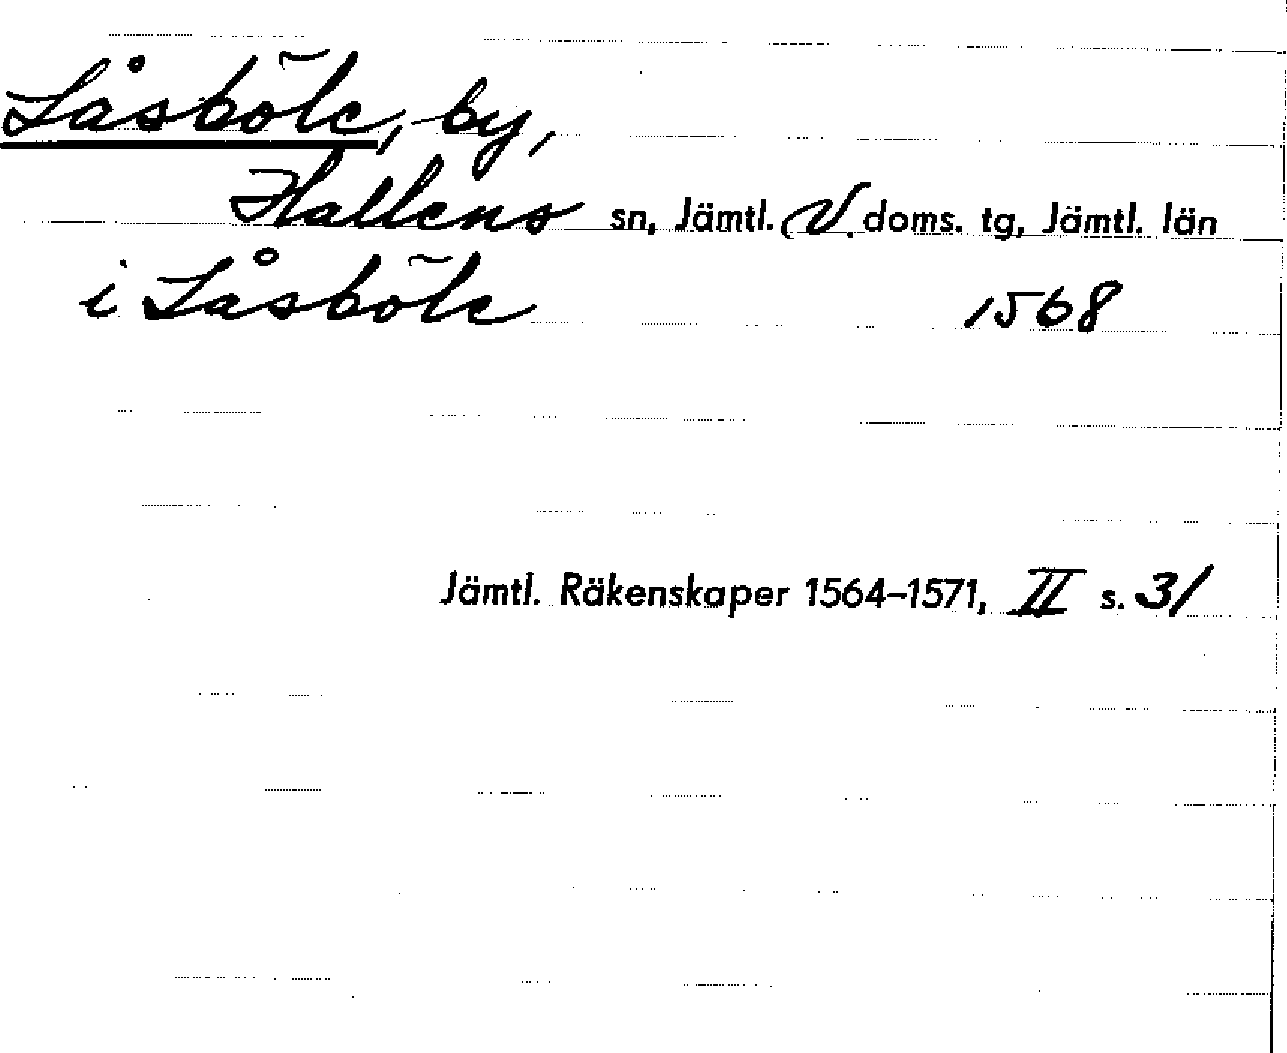 Låsböle, by,
Hallens sn, Jämtl. V. doms. tg, Jämtl. län
i Låsböle 1568
Jämtl. Räkenskaper 1564–1571, II s. 31